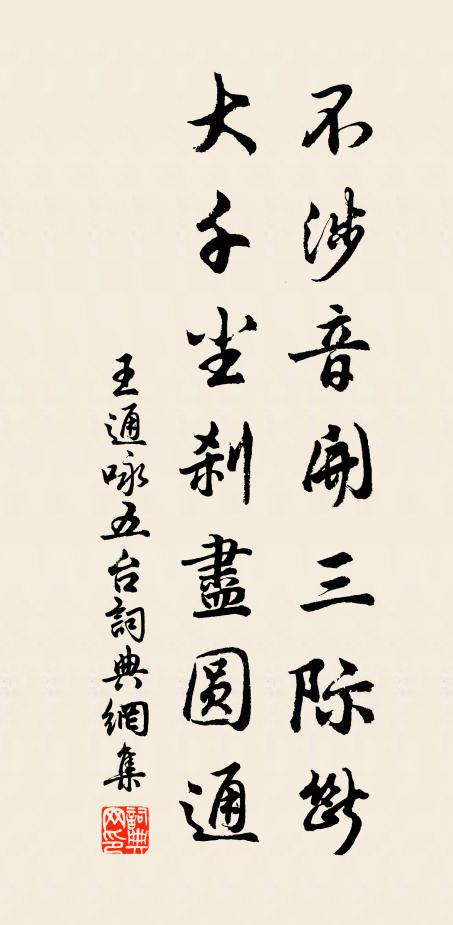 不涉音闻三际断
大千尘刹盡圆通
王通咏五台詞典網集
詞典网印